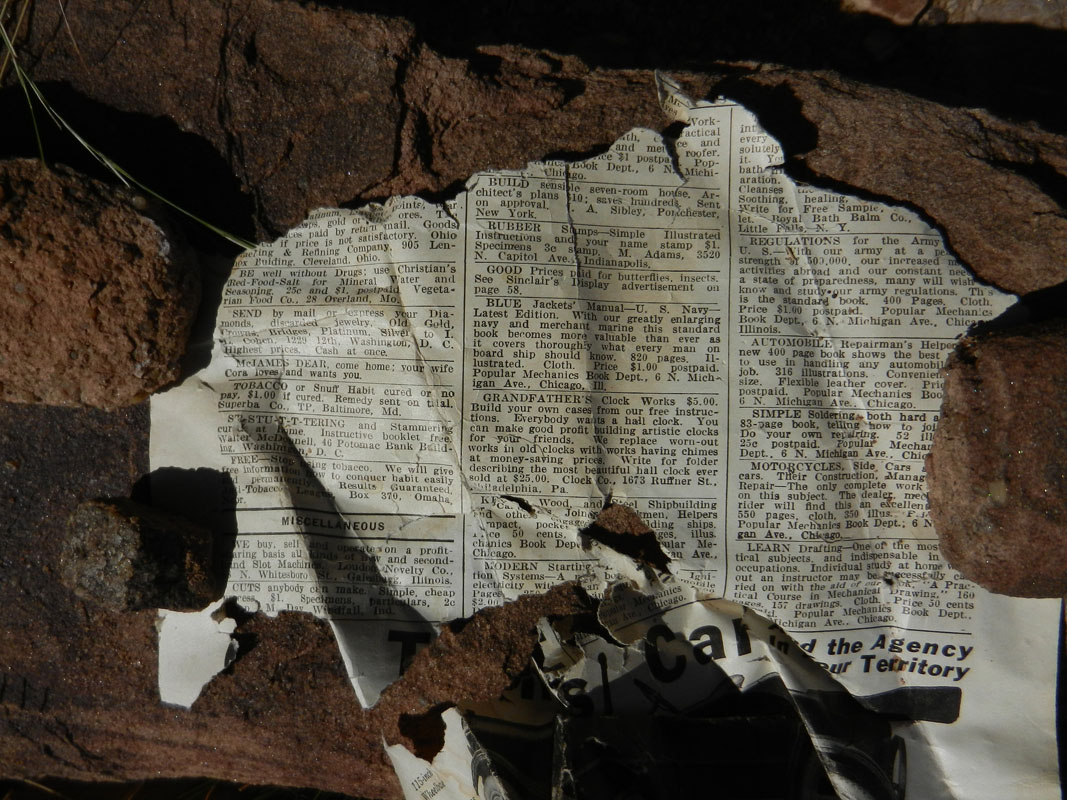 ores. T
sps, gold or
ces paid by return mail. Goods
if price is not satisfactory. Ohio
& Refining Company, 905 Len-
Building, Cleveland, Ohio.
BE well without Drugs; use Christian's
Red-Food-Salt for Mineral Water and
Seasoning. 25c and $1, postpaid. Vegeta-
rian Food Co., 28 Overland, Mo.
SEND by mail or express your Dia-
monds, discarded jewelry, Old Gold,
Crowns, Bridges, Platinum, Silver to I.
Cohen, 1229 12th, Washington, D. C.
Highest prices. Cash at once.
McJAMES DEAR, come home; your wife
Cora loves and wants you.
TOBACCO or Snuff Habit cured or no
pay, $1.00 if cured. Remedy sent on trial.
Superba Co., TP, Baltimore, Md.
ST-STU-T-T-TERING and Stammering
cured at Home. Instructive booklet free.
Walter McDonnell, 46 Potomac Bank Build-
ing, Washington, D. C.
FREE—Stop tobacco. We will give
free information how to conquer habit easily
permanently. Results Guaranteed.
Anti-Tobacco League, Box 370, Omaha,
MISCELLANEOUS
WE buy, sell and operate on a profit-
sharing basis all kinds of new and second-
hand Slot Machines. Novelty Co.,
N. Whitesboro St., Galesburg, Illinois.
CUTS anybody can make. Simple, cheap
$1. Specimens, particulars, 2c
Day, Windfall, Ind.
Work-
ractical
and
ce and
roofer.
Price $1 postpa
Pop-
Book Dept., 6 N. Michi-
Chicago.
BUILD sensible seven-room house. Ar-
chitect's plans $10; saves hundreds. Sent
on approval. A. Sibley, Portchester,
New York.
RUBBER Stamps—Simple Illustrated
Instructions and your name stamp $1.
Specimens 3c stamp. M. Adams, 3520
N. Capitol Ave., Indianapolis.
GOOD Prices paid for butterflies, insects.
See Sinclair's Display advertisement on
page 58.
BLUE Jackets' Manual—U. S. Navy—
Latest Edition. With our greatly enlarging
navy and merchant marine this standard
book becomes more valuable than ever as
it covers thoroughly what every man on
board ship should know. 820 pages. Il-
lustrated. Cloth. Price $1.00 postpaid.
Popular Mechanics Book Dept., 6 N. Mich-
igan Ave., Chicago, Ill.
GRANDFATHER'S Clock Works $5.00.
Build your own cases from our free instruc-
tions. Everybody wants a hall clock. You
can make good profit building artistic clocks
for your friends. We replace worn-out
works in old clocks with works having chimes
at money-saving prices. Write for folder
describing the most beautiful hall clock ever
sold at $25.00. Clock Co., 1673 Ruffner St.,
Philadelphia, Pa.
Wood, and Steel Shipbuilding
and others. Joiners, Helpers
building ships.
Compact, pocket
Price 50 cents, illus.
chanics Book Dept. Popular Me-
Chicago. Ave.,
MODERN Starting
tion Systems—A Igni-
electricity
$2.00
Mechanics
Chicago.
int
every
solutely
it. You
bath
aration.
Cleanses
Soothing, healing.
Write for Free Sample,
let. Royal Bath Balm Co.,
Little Falls, N. Y.
REGULATIONS for the Army
U. S.—With our army at a pe
strength of 500,000, our increased m
activities abroad and our constant nee
a state of preparedness, many will wish
know and study our army regulations. This
is the standard book. 400 Pages. Cloth.
Price $1.00 postpaid. Popular Mechanics
Book Dept., 6 N. Michigan Ave., Chicago,
Illinois.
AUTOMOBILE Repairman's Helper
new 400 page book shows the best
to use in handling any automobil
job. 316 illustrations. Convenien
size. Flexible leather cover. Pric
postpaid. Popular Mechanics Boo
6 N. Michigan Ave., Chicago.
SIMPLE Soldering, both hard a
83-page book, telling how to joi
Do your own repairing. 52 ill
25c postpaid. Popular Mechan
Dept., 6 N. Michigan Ave., Chica
MOTORCYCLES, Side Cars
cars. Their Construction, Manag
Repair—The only complete work
on this subject. The dealer, mec
rider will find this an excellent
550 pages, cloth, 350 illus.
Popular Mechanics Book Dept., 6 N
gan Ave., Chicago.
LEARN Drafting—One of the most
tical subjects, and indispensable in
occupations. Individual study at home
out an instructor may be successfully car
ried on with the aid of our book "A Prac
tical Course in Mechanical Drawing," 160
pages, 157 drawings, Cloth, Price 50 cents
Popular Mechanics Book Dept.,
Michigan Ave., Chicago.
Car
and the Agency
our Territory
115-inch
Wheelbase